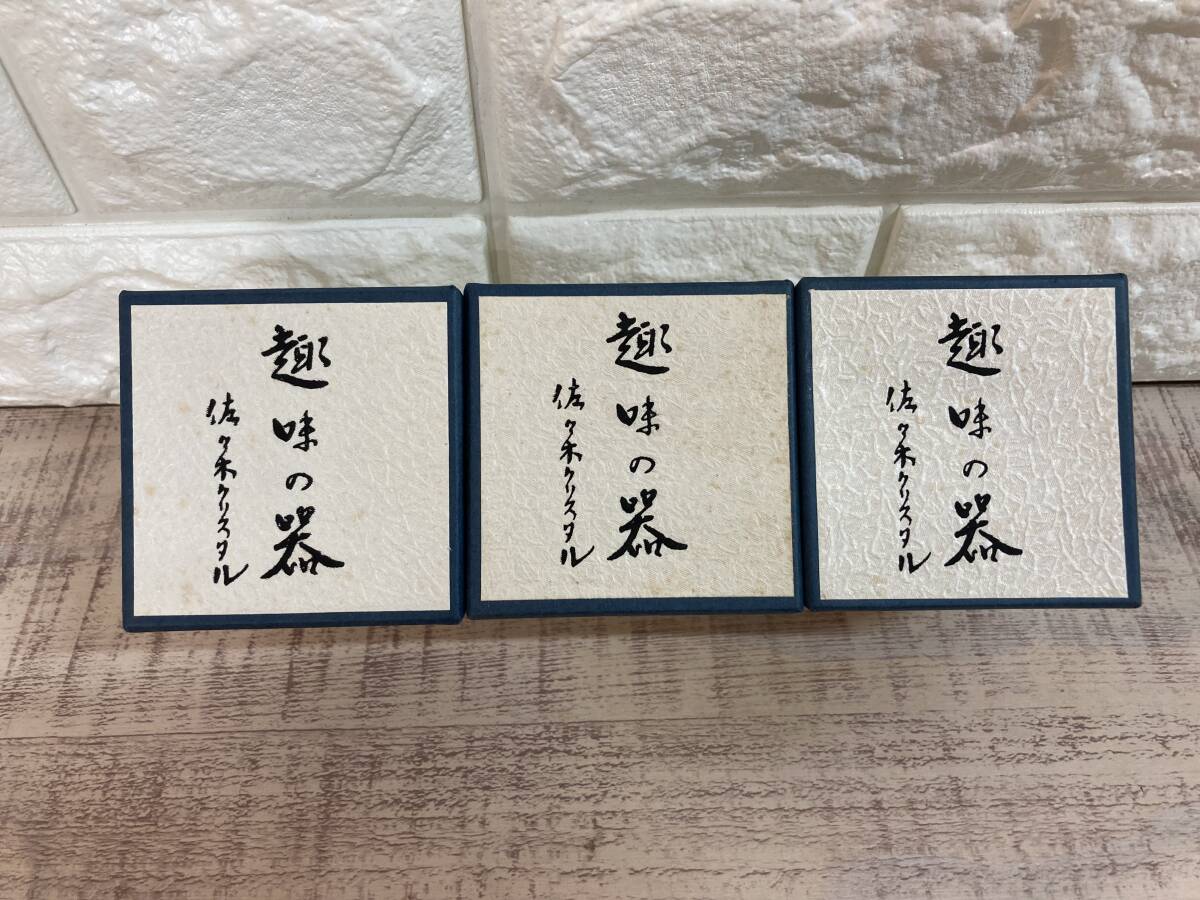 趣味の器
佐々木クリスタル
趣味の器
佐々木クリスタル
趣味の器
佐々木クリスタル